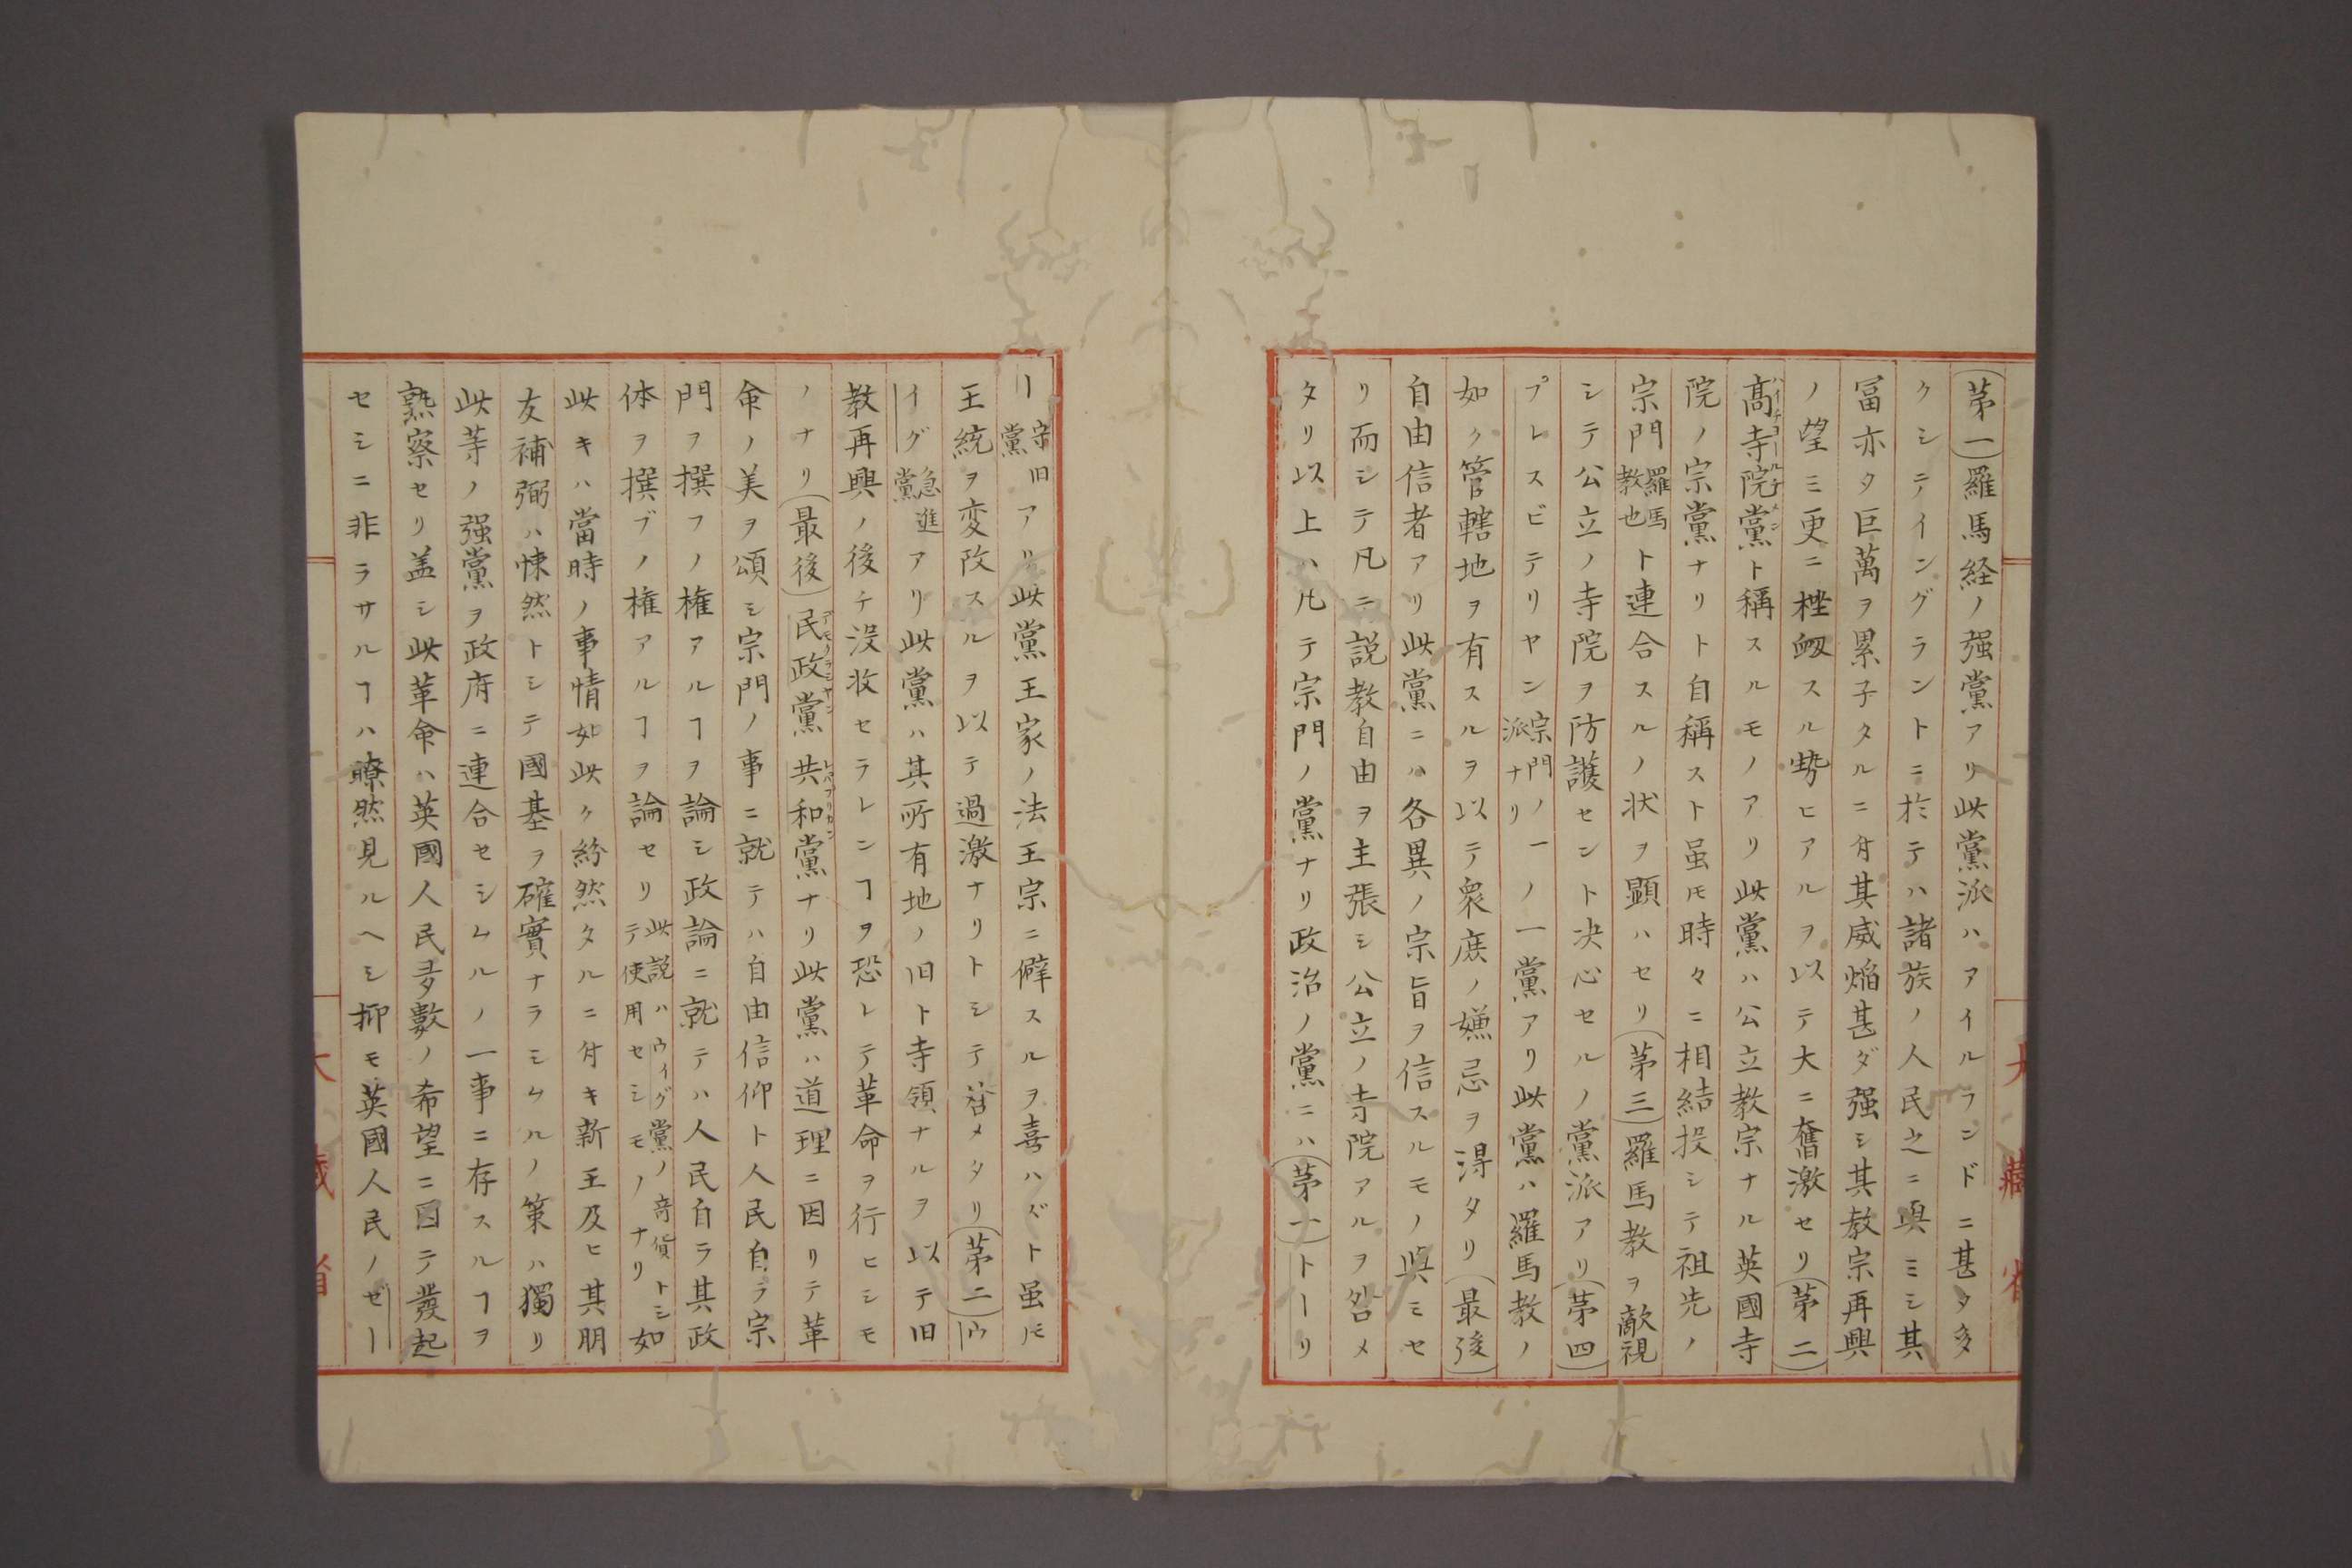 (第一)羅馬経ノ强黨アリ此黨派ハアイルランドニ甚タ多
クシテイングラントニ於テハ諸族ノ人民之ニ與ミシ其
冨亦タ巨萬ヲ累子タルニ付其威焔甚ダ强シ其教宗再興
ノ望ミ更ニ挫衂スル勢ヒアルヲ以テ大ニ奮激セリ(第二)
髙寺院黨ト稱スルモノアリ此黨ハ公立教宗ナル英國寺
院ノ宗黨ナリト自稱スト虽𪜈時々ニ相結投シテ祖先ノ
宗門羅馬教也ト連合スルノ状ヲ顕ハセリ(第三)羅馬教ヲ敵視
シテ公立ノ寺院ヲ防護セント决心セルノ黨派アリ(第四)
プレスビテリヤン宗門ノ一派ナリノ一黨アリ此黨ハ羅馬教ノ
如ク管轄地ヲ有スルヲ以テ衆庶ノ嫌忌ヲ得タリ(最後)
自由信者アリ此黨ニハ各異ノ宗旨ヲ信スルモノ與ミセ
リ而シテ凡ニ説教自由ヲ主張シ公立ノ寺院アルヲ咎メ
タリ以上ハ凡テ宗門ノ黨ナリ政治ノ黨ニハ(第一)トーリ
ー守旧黨アリ此黨王家ノ法王宗ニ僻スルヲ喜ハズト虽𪜈
王統ヲ変改スルヲ以テ過激ナリトシテ咎メタリ(第二)ウ
イグ急進黨アリ此黨ハ其所有地ノ旧ト寺領ナルヲ以テ旧
教再興ノ後チ没收セラレンヿヲ恐レテ革命ヲ行ヒシモ
ノナリ(最後)民政黨共和黨ナリ此黨ハ道理ニ因リテ革
命ノ美ヲ頌シ宗門ノ事ニ就テハ自由信仰ト人民自ラ宗
門ヲ撰フノ権アルヿヲ論シ政論ニ就テハ人民自ラ其政
体ヲ撰ブノ権アルヿヲ論セリ此説ハウイグ黨ノ奇貨トシテ使用セシモノナリ如
此キハ當時ノ事情如此ク紛然タルニ付キ新王及ヒ其朋
友補弼ハ悚然トシテ國基ヲ確實ナラシムルノ策ハ獨リ
此等ノ强黨ヲ政府ニ連合セシムルノ一事ニ存スルヿヲ
熟察セリ盖シ此革命ハ英國人民多數ノ希望ニ因テ發起
セシニ非ラサルヿハ瞭然見ルヘシ抑モ英國人民ノゼー
大藏省